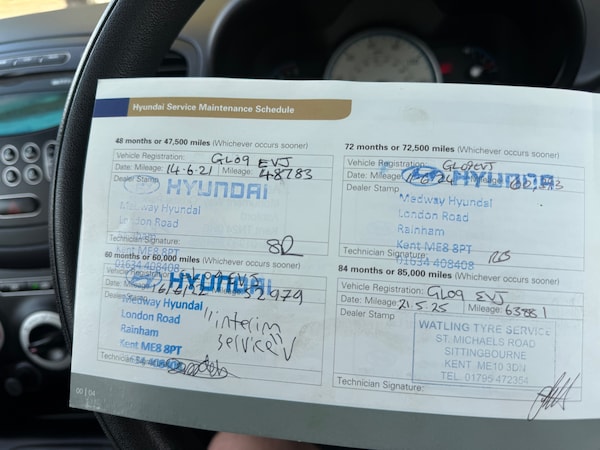 Hyundai Service Maintenance Schedule
48 months or 47,500 miles (Whichever occurs sooner)
Vehicle Registration: GL09 EVJ
Date: Mileage: 14-6-21 Mileage: 48783
Dealer Stamp
HYUNDAI
Medway Hyundai
London Road
Rainham
Technician Signature:
Kent ME8 8PT
01634 408408
60 months or 60,000 miles (Whichever occurs sooner)
HYUNDAI
16/6/22 52979
Medway Hyundai
London Road
Rainham
Kent ME8 8PT
"interim service"
Technician
72 months or 72,500 miles (Whichever occurs sooner)
Vehicle Registration: GL09EVJ
Date: Mileage: Mileage:
HYUNDAI
Dealer Stamp
Medway Hyundai
London Road
Rainham
Kent ME8 8PT
Technician Signature:
01634 408408
84 months or 85,000 miles (Whichever occurs sooner)
Vehicle Registration: GL09 EVJ
Date: Mileage: 21.5.25 Mileage: 63881
Dealer Stamp
WATLING TYRE SERVICE
ST. MICHAELS ROAD
SITTINGBOURNE
KENT ME10 3DN
TEL 01795 472354
Technician Signature:
00 | 04